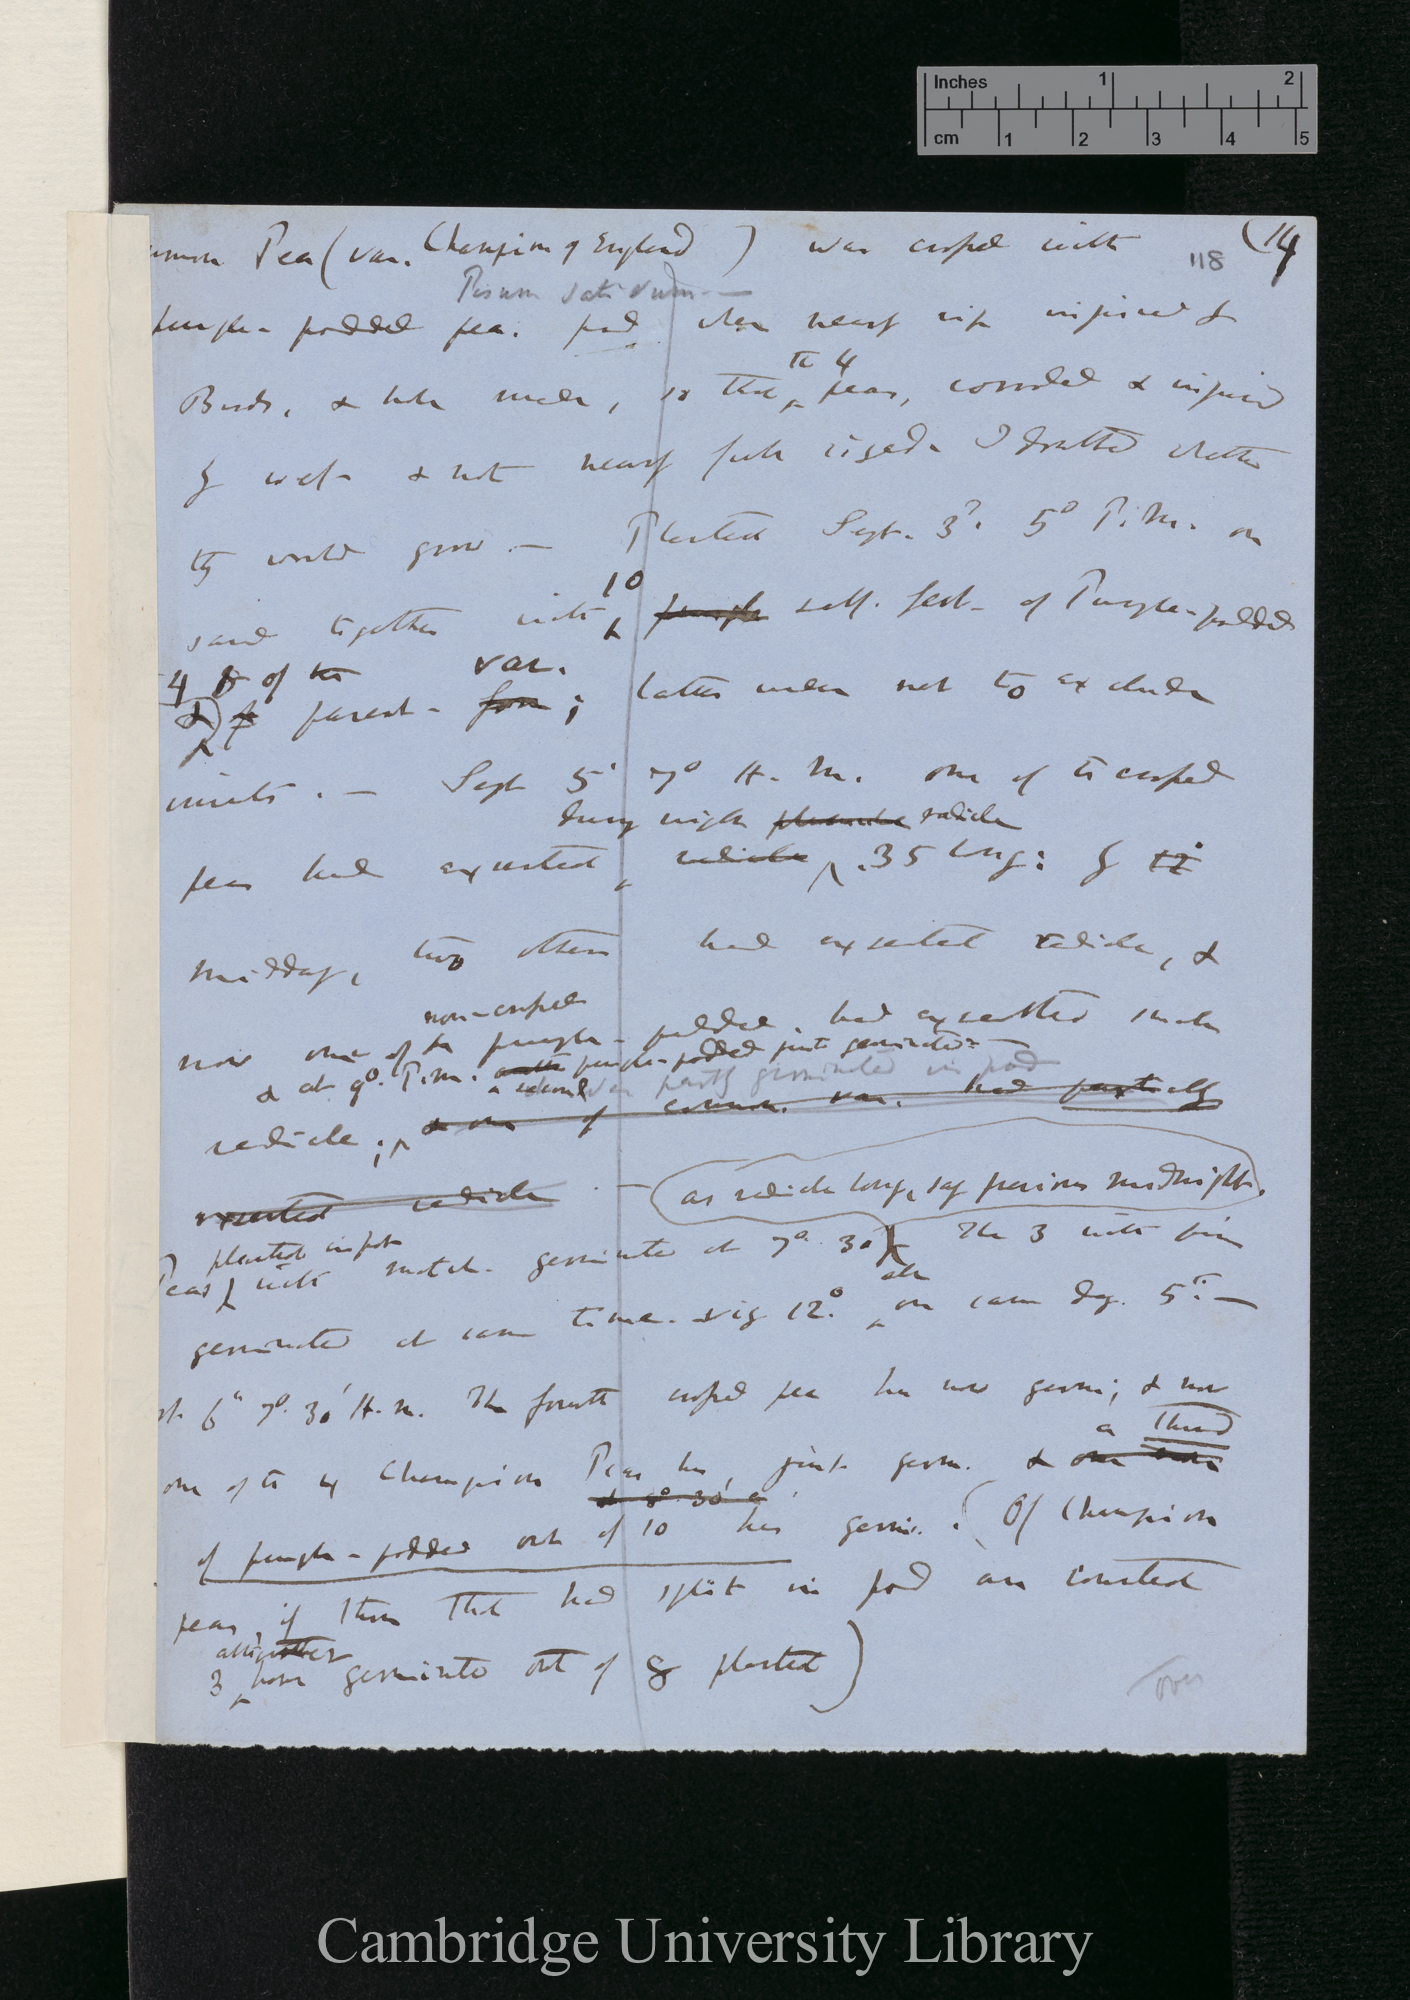 Inches 1 2
cm 1 2 3 4 5
(14
118
Pea (var. Champion of England) was crossed with
Pisum sativum —
purple-podded pea. pod when nearly ripe injured by
Birds, & when so that
the 4
peas, corroded & injured
by wet & not nearly full sized. I doubted whether
they would grow. — Planted Sept. 3d. 5° P.M. on
sand together with
10
purple self. fert. of Purple-podded
4 of the var.
& parent- form; latter not to exclude
Sept 5' 7° A.M. one of the crossed
during night plumule radicle
peas had exserted radicle .35 long: by
midday, two others had exserted radicle, &
non-crossed
now one of the purple-podded had exserted
& at 9°. P.M. another purple-podded just germinated —
a second var partly germinated in pod
radicle; & one of common. var. had partially
exserted radicle —
as radicle long, say previous midnight.
planted in pot
Peas, with germinated at 7° 30' The 3 with
germinated at same time. viz 12° on same day. 5th. —
6th 7°. 30' A.M. The fourth crossed pea has now germ; & now
a third
one of the Champion Peas has just germ. & one more
& 8° 30' a
of purple-podded out of 10 has germ. (Of Champion
peas, if those that had split in pod are counted
altogether
3 have germinated out of 8 planted)
over
Cambridge University Library